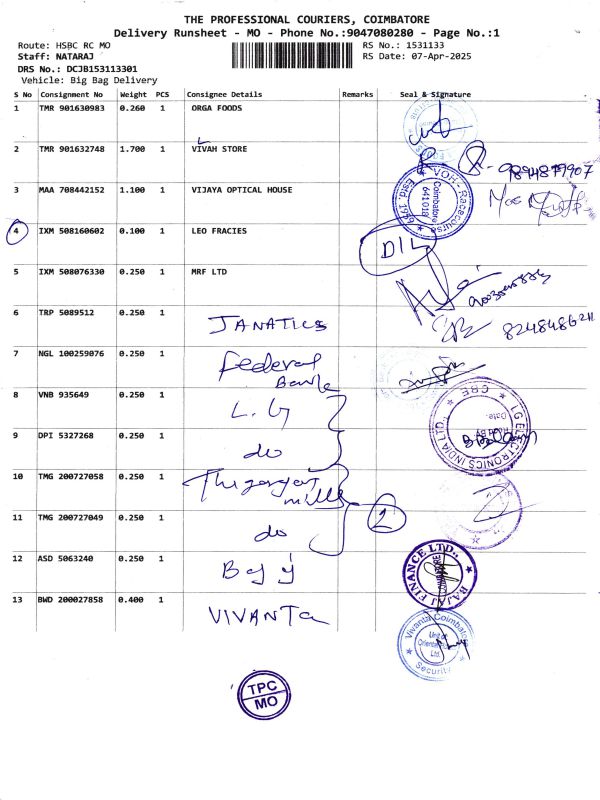 THE PROFESSIONAL COURIERS, COIMBATORE
Delivery Runsheet - MO - Phone No.:9047080280 - Page No.:1
Route: HSBC RC MO RS No.: 1531133
Staff: NATARAJ RS Date: 07-Apr-2025
DRS No.: DCJB153113301
Vehicle: Big Bag Delivery
S No Consignment No Weight PCS Consignee Details Remarks Seal & Signature
1 TMR 901630983 0.260 1 ORGA FOODS
2 TMR 901632748 1.700 1 VIVAH STORE
9894879907
3 MAA 708442152 1.100 1 VIJAYA OPTICAL HOUSE
VOH - Racecourse
Coimbatore
641018
4 IXM 508160602 0.100 1 LEO FRACIES
D/L
5 IXM 508076330 0.250 1 MRF LTD
6 TRP 5089512 0.250 1 JANATICS
7 NGL 100259076 0.250 1 Federal Bank
8 VNB 935649 0.250 1 L.G
LG ELECTRONICS INDIA LTD. CBE
9 DPI 5327268 0.250 1 do
10 TMG 200727058 0.250 1 mills
2
11 TMG 200727049 0.250 1 do
12 ASD 5063240 0.250 1 Bajaj
BAJAJ FINANCE LTD.,
13 BWD 200027858 0.400 1 VIVANTA
Vivanta Coimbatore
Unit of
Ltd.
Security
TPC
MO